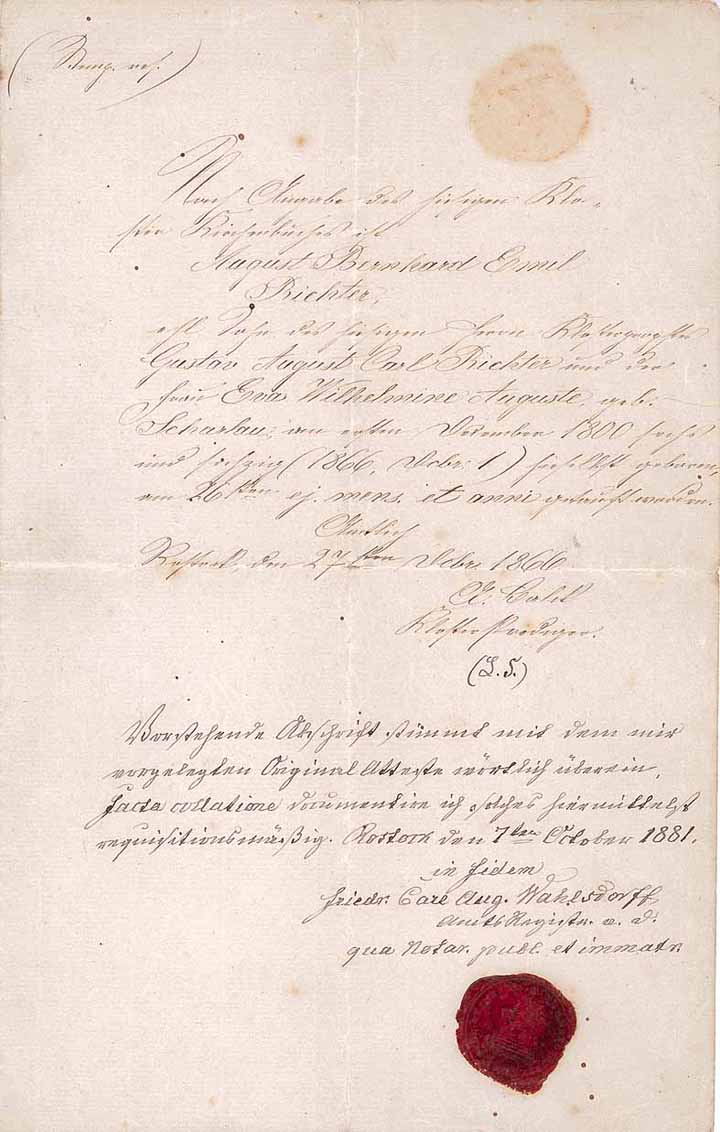 (Stemp. ref.)
Nach Angabe des hiesigen Klo-
ster Kirchenbuches ist
August Bernhard Emil
Richter,
ehl. Sohn des hiesigen Herrn
Gustav August Carl Richter und der
Frau Eva Wilhelmine Auguste, geb.
Scharlau, am ersten December 1800 sechs
und sechzig (1866, Dcbr. 1) hieselbst geboren,
am 26sten ej. mens. et anni getauft worden.
Amtlich
Rostock, den 27sten Dcbr. 1866
Klosterprediger.
(L.S.)
Vorstehende Abschrift stimmt mit dem mir
vorgelegten Original Atteste wörtlich überein,
facta collatione documentire ich solches hiermittelst
requisitionsmäßig. Rostock den 7ten October 1881.
in fidem
Friedr. Carl Aug. Wahlsdorff
Amts Registr. a. d.
qua Notar. publ. et immatr.